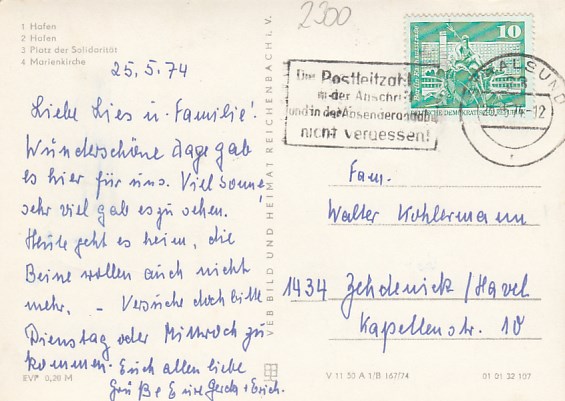 2300
1 Hafen
2 Hafen
3 Platz der Solidarität
4 Marienkirche
25.5.74
Liebe Lies u. Familie!
Wunderschöne Tage gab
es hier für uns. Viel Sonne,
sehr viel gab es zu sehen.
Heute geht es heim, die
Beine wollen auch nicht
mehr. – Versuche doch bitte
Dienstag oder Mittwoch zu
kommen. Euch allen liebe
Grüße Eure Gerda + Erich.
EVP 0,20 M
VEB BILD UND HEIMAT REICHENBACH i. V.
Die Postleitzahl
in der Anschrift
und in der Absenderangabe
nicht vergessen!
10
STRALSUND
23
-12
Fam.
Walter Kohlermann
1434 Zehdenick/Havel
Kapellenstr. 10
V 11 50 A 1/B 167/74
01 01 32 107